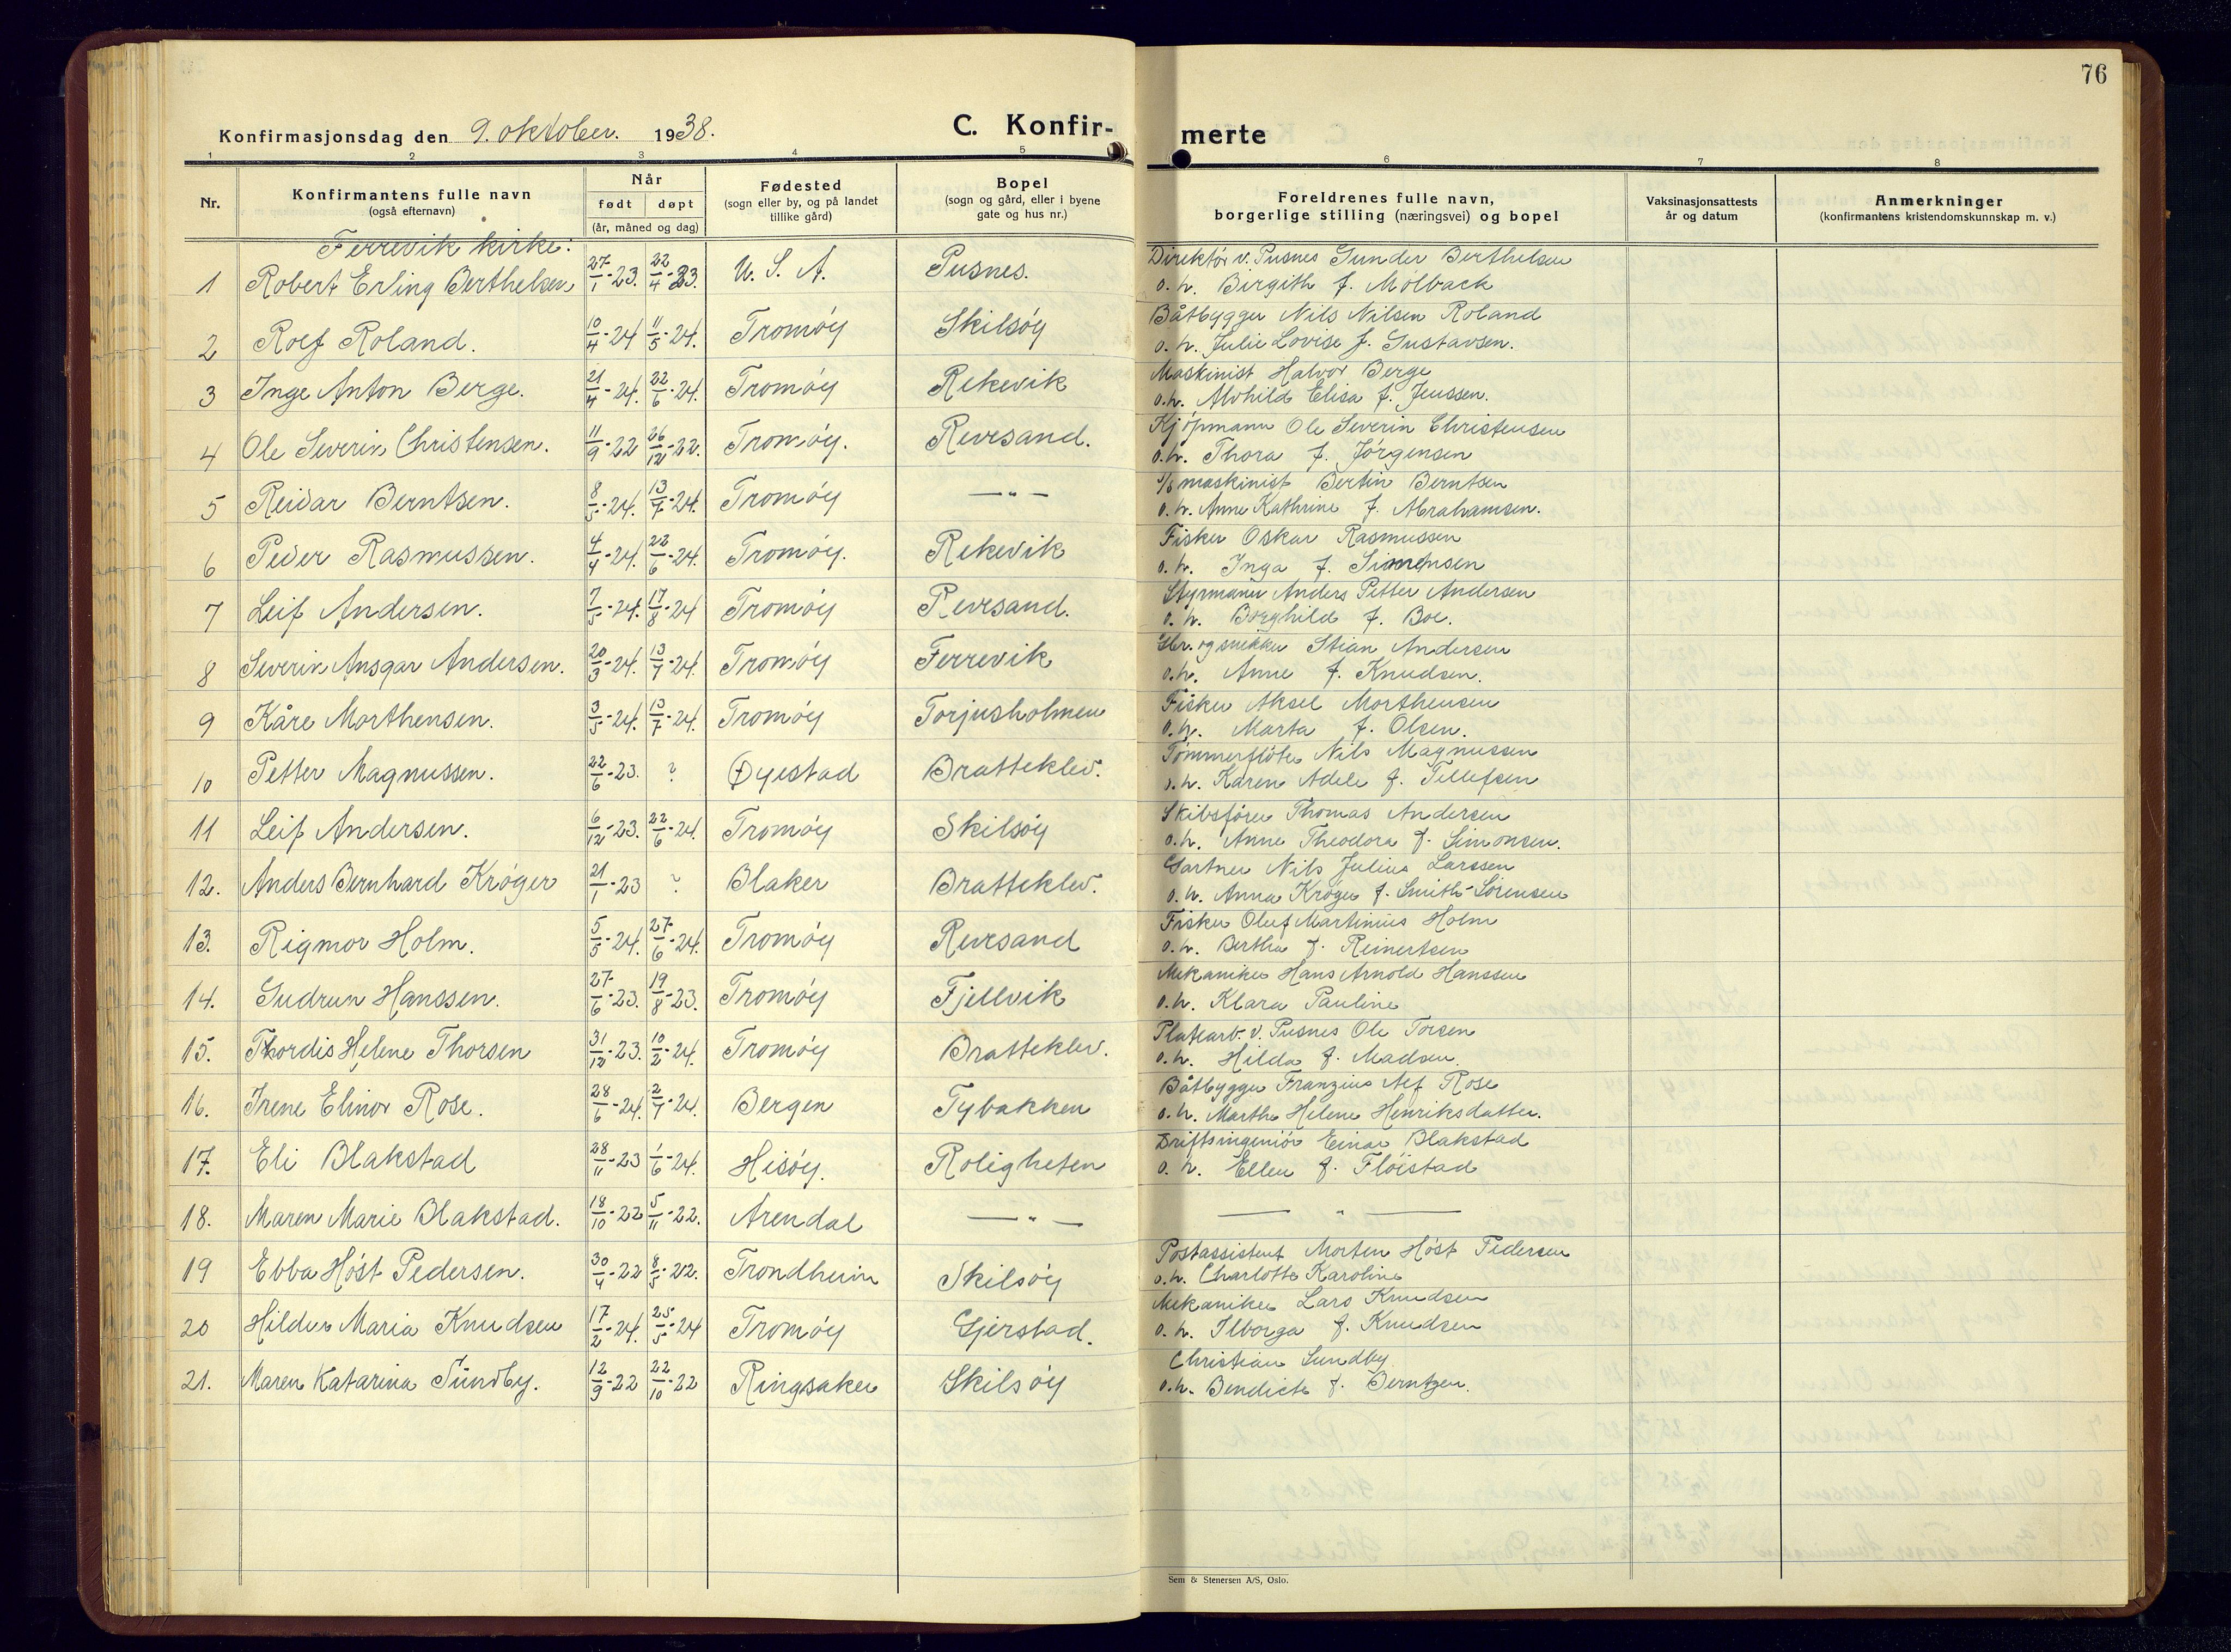 76
Konfirmasjonsdag den 9. oktober. 1938.
C. Konfir-
merte
1 2 3 4 5 6 7 8
Nr.
Konfirmantens fulle navn
(også efternavn)
Når
født døpt
(år, måned og dag)
Fødested
(sogn eller by, og på landet
tillike gård)
Bopel
(sogn og gård, eller i byene
gate og hus nr.)
Foreldrenes fulle navn,
borgerlige stilling (næringsvei) og bopel
Vaksinasjonsattests
år og datum
Anmerkninger
(konfirmantens kristendomskunnskap m. v.)
Færrevik kirke:
1 Robert Erling Berthelsen 27/1-23. 22/4-23. U. S. A. Pusnes. Direktør v. Pusnes Gunder Berthelsen
o. h. Birgith f. Mølback
2 Rolf Roland. 10/4-24 11/5-24. Tromøy Skilsøy Båtbygger Nils Nilsen Roland
o. h. Julie Lovise f. Gustavsen.
3 Inge Anton Berge. 21/4-24. 22/6-24. Tromøy Rekevik Maskinist Halvor Berge
o. h. Alvhild Elisa f. Jenssen.
4 Ole Severin Christensen. 11/9-22 26/12-22. Tromøy. Revesand. Kjøpmann Ole Severin Christensen
o. h. Thora f. Jørgensen
5 Reidar Berntsen. 8/5-24. 13/7-24. Tromøy —"— maskinist Bertin Berntsen
o. h. Anne Kathrine f. Abrahamsen.
6 Peder Rasmussen. 4/4-24. 22/6-24. Tromøy. Rekevik Fisker Oskar Rasmussen
o. h. Inga f. Simonsen
7 Leif Andersen. 7/5-24. 17/8-24 Tromøy Revesand. Styrmann Anders Petter Andersen
o. h. Borghild f. Boe.
8 Severin Ansgar Andersen. 20/3-24. 13/7-24. Tromøy Færrevik Gbr. og snekker Stian Andersen
o. h. Anne f. Knudsen.
9 Kåre Morthensen. 3/5-24. 13/7-24. Tromøy Torjusholmen Fisker Aksel Morthensen
o. h. Marta f. Olsen.
10 Petter Magnussen. 22/6-23. ? Øyestad Bratteklev. Tømmerfløter Nils Magnussen
o. h. Karen Adele f. Tellefsen
11 Leif Andersen. 6/12-23. 22/6-24. Tromøy Skilsøy Skibsfører Thomas Andersen
o. h. Anne Theodora f. Simonsen.
12. Anders Bernhard Krøger 21/1-23 ? Blaker Bratteklev. Gartner Nils Julius Larssen
o. h. Anna Krøger f. Smith-Sørensen
13. Rigmor Holm. 5/5-24. 27/6-24. Tromøy Revesand Fisker Oluf Martinius Holm
o. h. Bertha f. Reinertsen
14. Gudrun Hanssen. 27/6-23. 19/8-23. Tromøy Fjellvik Mekaniker Hans Arnold Hanssen
o. h. Klara Pauline
15. Thordis Helene Thorsen 31/12-23. 10/2-24. Tromøy Bratteklev. Platearb. v. Pusnes Ole Torsen
o. h. Hilda f. Madsen.
16. Irene Elinor Rose. 28/6-24. 2/7-24. Bergen Tybakken Båtbygger Franzius Alf Rose
o. h. Marthe Helene Henriksdatter.
17. Eli Blakstad 28/11-23 1/6-24. Hisøy. Roligheten Driftsingeniør Einar Blakstad
o. h. Ellen f. Fløistad
18. Maren Marie Blakstad. 18/10-22 5/11-22. Arendal —"— —"—
19 Ebba Høst Pedersen. 30/4-22 8/5-22. Trondheim Skilsøy Postassistent Morten Høst Pedersen
o. h. Charlotte Karoline
20 Hildur Maria Knudsen 17/2-24. 25/5-24 Tromøy Gjerstad. Mekaniker Lars Knudsen
o. h. Ilborga f. Knudsen
21. Maren Katarina Sundby. 12/9-22 22/10-22 Ringsaker Skilsøy Christian Sundby
o. h. Bendicte f. Berntzen.
Sem & Stenersen A/S, Oslo.